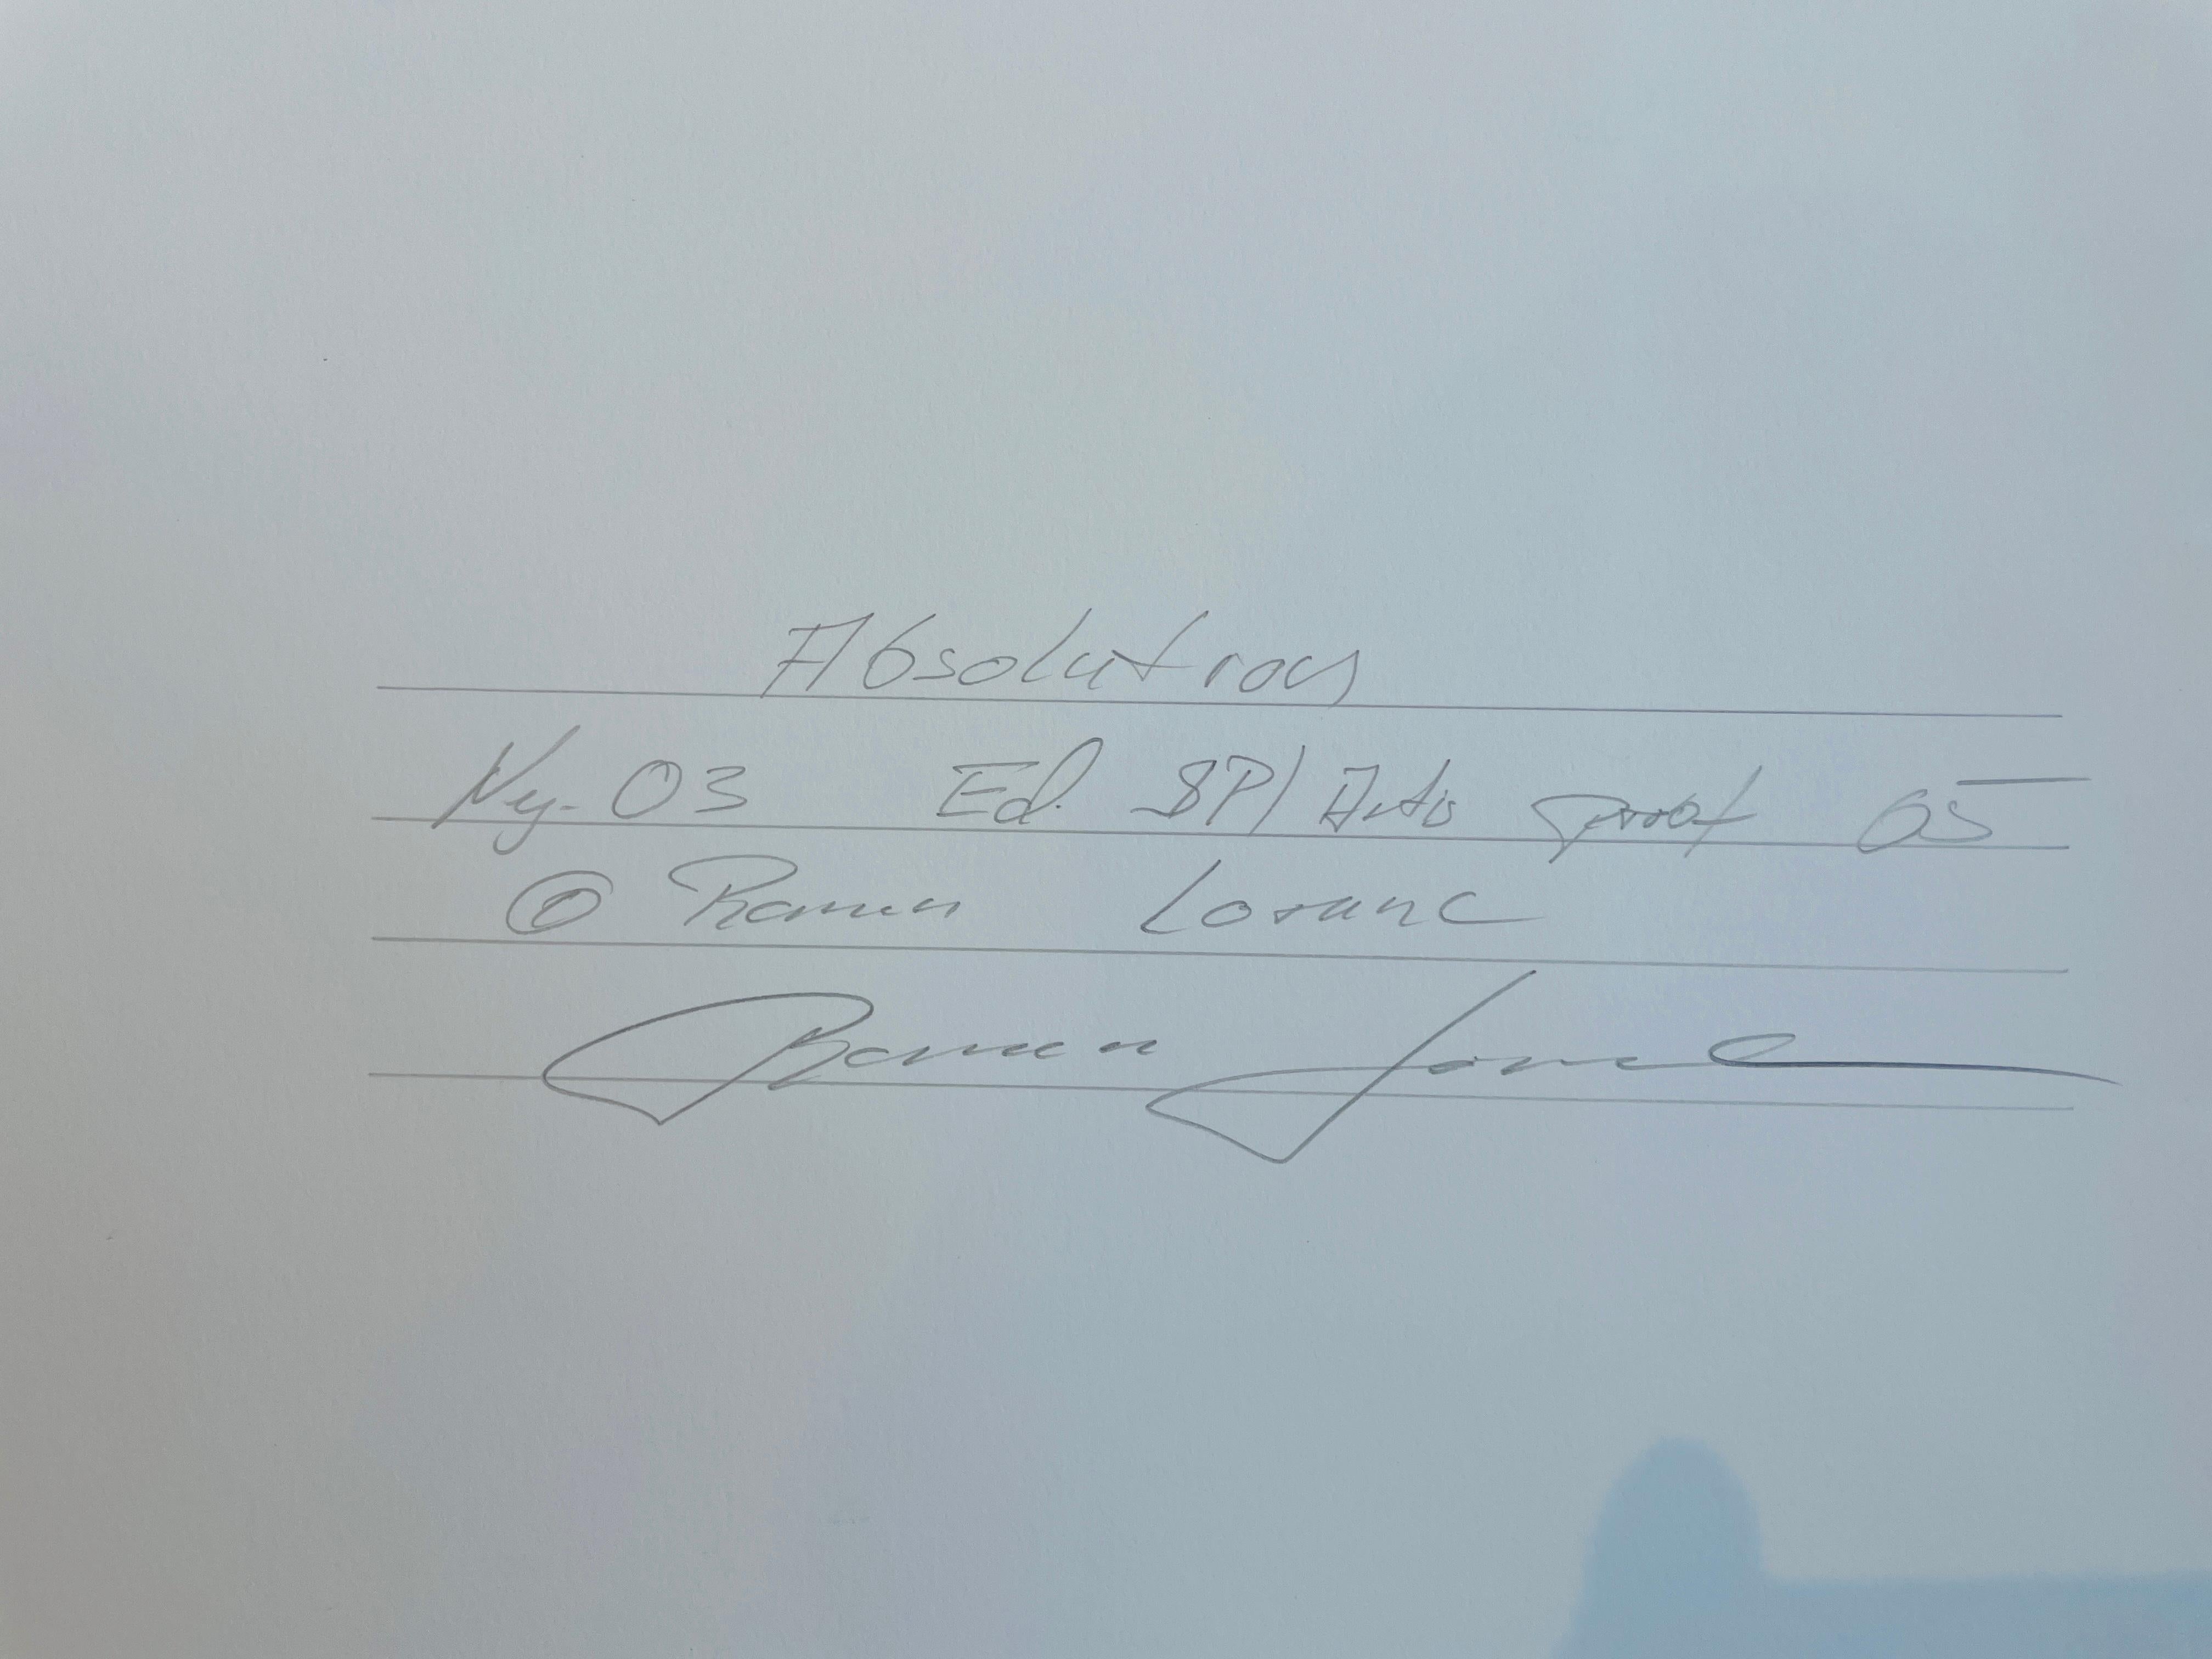 Absolution
Ny-03 Ed. SP/ Artis proof 05
© Roman Loranc
Roman Loranc